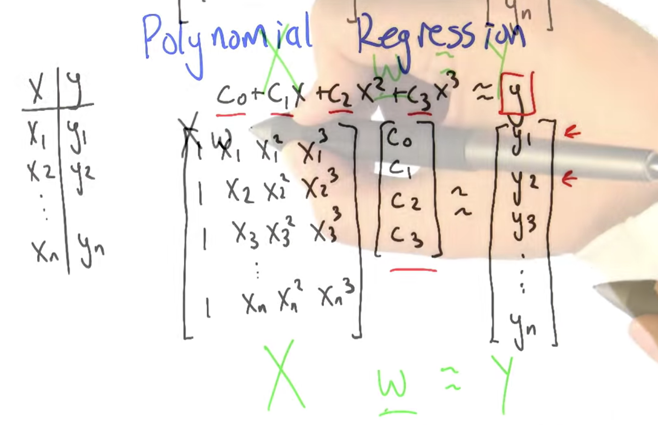 yn
Polynomial Regression
X w ≈ Y
c0 + c1x + c2x² + c3x³ ≈ y
x y
x1 y1
x2 y2
⋮
xn yn
X w
x1 x1² x1³
1 x2 x2² x2³
1 x3 x3² x3³
⋮
1 xn xn² xn³
c0
c1
c2
c3
≈
y1
y2
y3
⋮
yn
X w ≈ Y